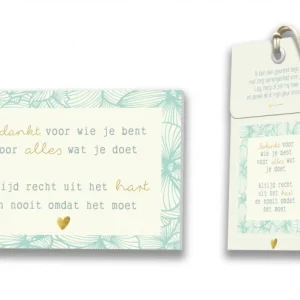 dankt voor wie je bent
oor alles wat je doet
ijd recht uit het hart
n nooit omdat het moet
Bedankt voor
wie je bent
voor alles wat
je doet
Altijd recht
uit het hart
en nooit omdat
het moet